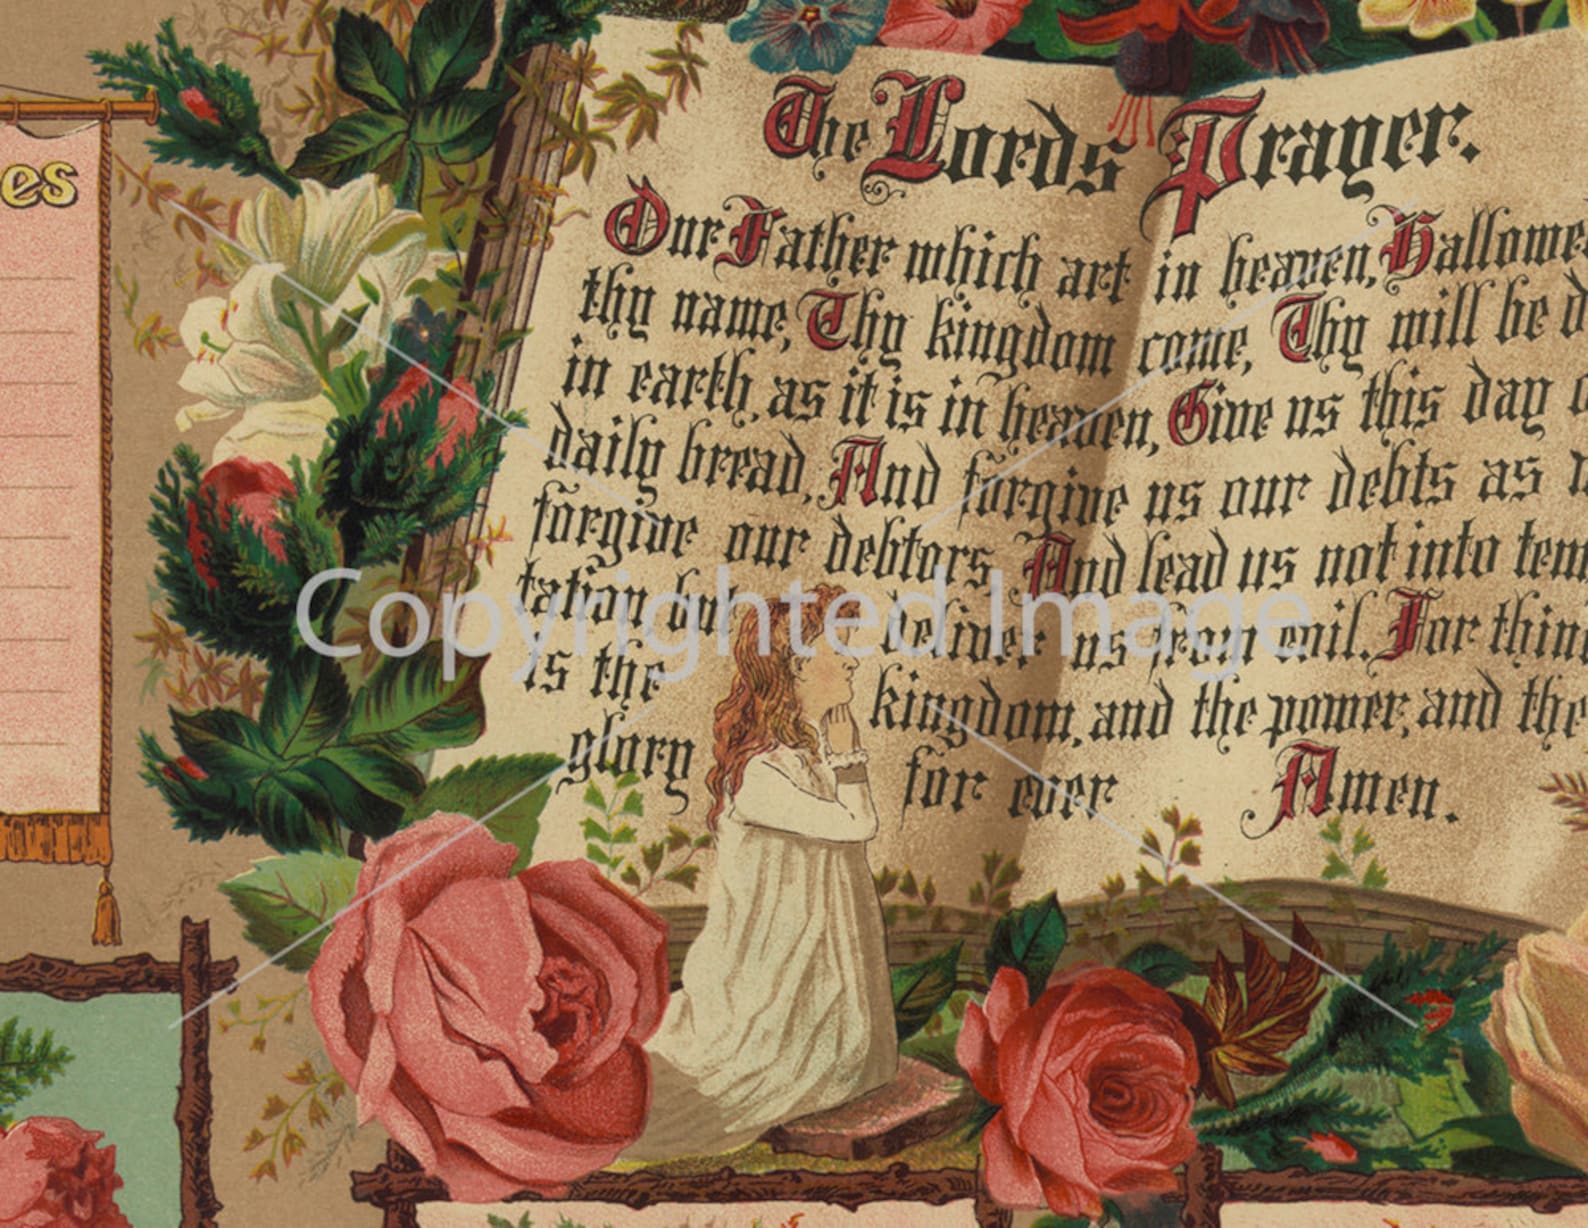 es
The Lords Prayer.
Our Father which art in heaven, Hallowe
thy name, Thy kingdom come, Thy will be d
in earth, as it is in heaven, Give us this day o
daily bread, And forgive us our debts as
forgive our debtors, And lead us not into tem
tation but deliver us from evil. For thin
is the kingdom, and the power, and the
glory for ever Amen.
Copyrighted Image